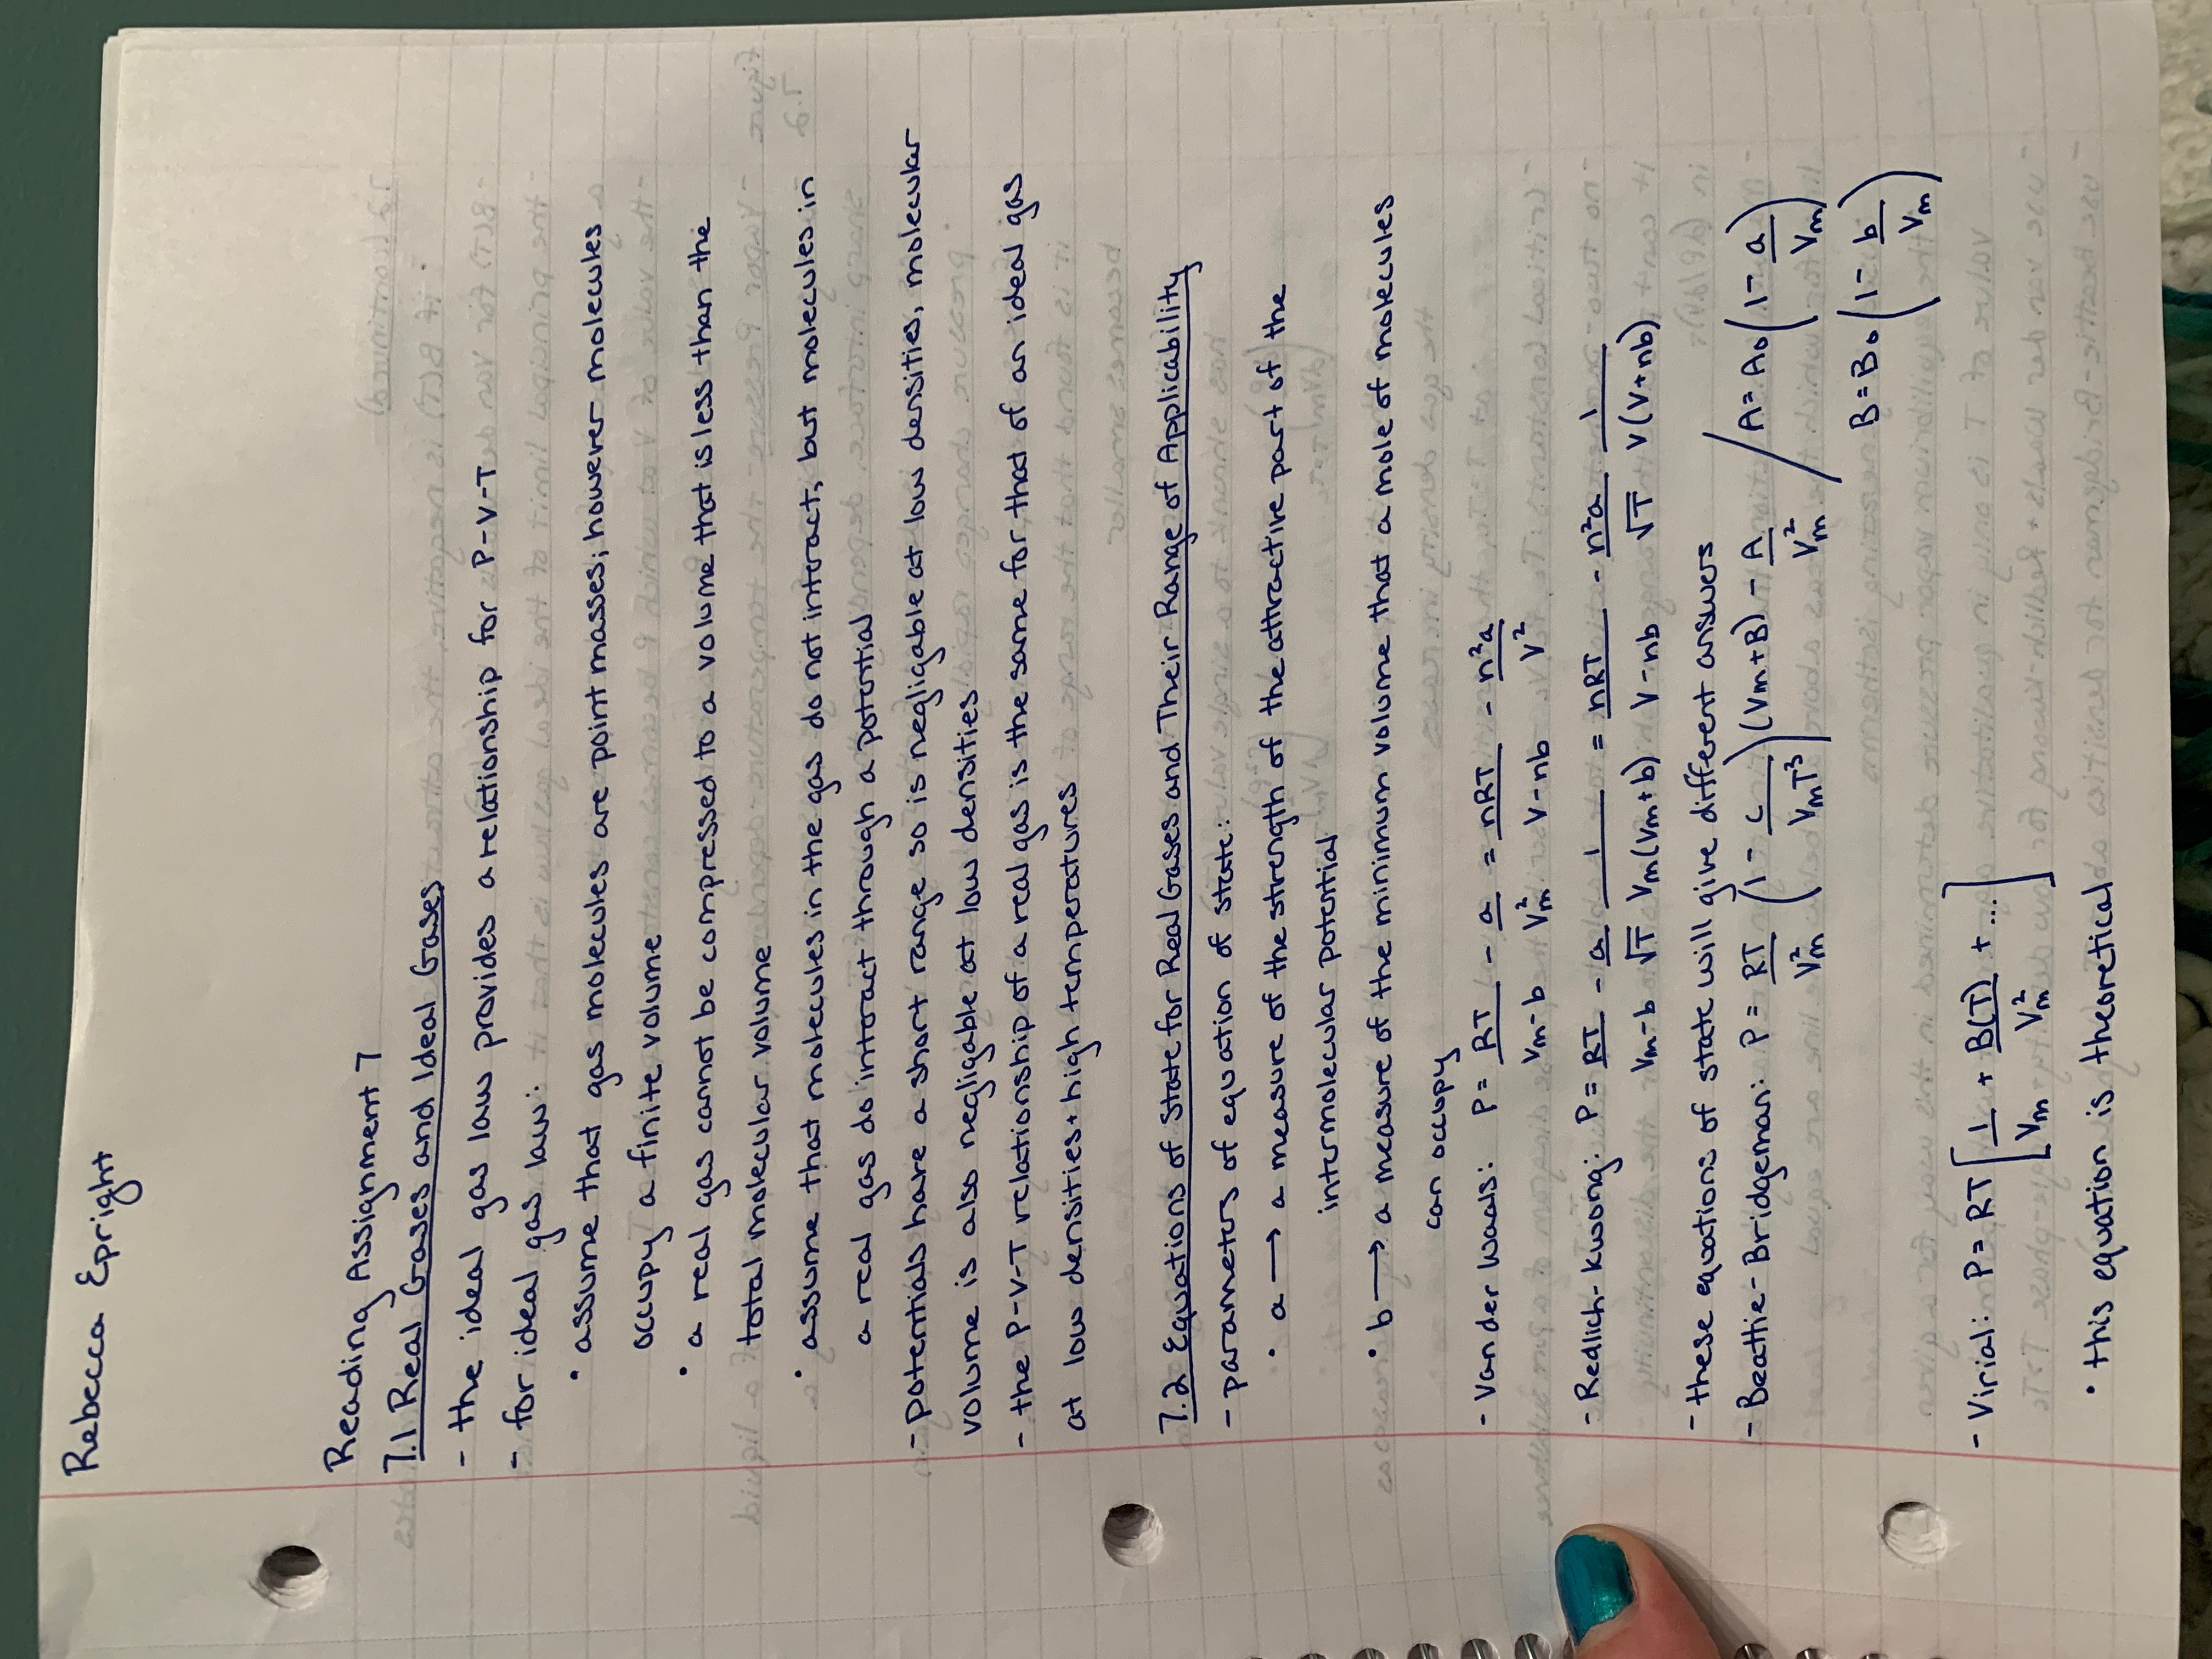 Rebecca Epright
Reading Assignment 7
7.1 Real Gases and Ideal Gases
- the ideal gas law provides a relationship for P-V-T
- for ideal gas law:
• assume that gas molecules are point masses; however molecules
occupy a finite volume
• a real gas cannot be compressed to a volume that is less than the
total molecular volume
• assume that molecules in the gas do not interact, but molecules in
a real gas do interact through a potential
- potentials have a short range so is negligable at low densities, molecular
volume is also negligable at low densities
- the P-V-T relationship of a real gas is the same for that of an ideal gas
at low densities + high temperatures
7.2 Equations of State for Real Gases and Their Range of Applicability
- parameters of equation of state:
• a → a measure of the strength of the attractive part of the
intermolecular potential
• b → a measure of the minimum volume that a mole of molecules
can occupy
- Van der Waals: P = RT/(Vm-b) - a/Vm² = nRT/(V-nb) - n²a/V²
- Redlich-Kwong: P = RT/(Vm-b) - a/√T 1/(Vm(Vm+b)) = nRT/(V-nb) - n²a/√T 1/(V(V+nb))
- these equations of state will give different answers
- Beattie-Bridgeman: P = RT/Vm² (1 - c/(VmT³)) (Vm+B) - A/Vm² / A = A₀(1 - a/Vm)
B = B₀(1 - b/Vm)
- Virial: P = RT[1/Vm + B(T)/Vm² + ...]
• this equation is theoretical